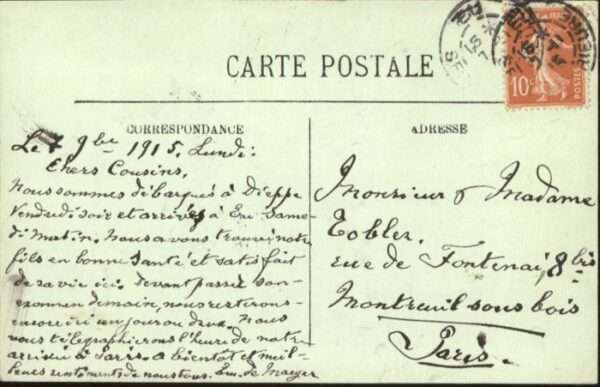 CARTE POSTALE
CORRESPONDANCE
Le 7 9bre 1915, Lundi:
Chers Cousins,
Nous sommes débarqués à Dieppe
Vendredi soir et arrivés à Eu Same-
di Matin. Nous avons trouvé notre
fils en bonne santé et satisfait
de sa vie ici. Devant passer son
examen demain, nous resterons
encore ici un jour ou deux. Nous
vous télégraphierons l'heure de notre
arrivée à Paris. A bientôt et meil-
leurs sentiments de nous tous. Em. de Maeyer
ADRESSE
Monsieur & Madame
Tobler.
rue de Fontenai, 8 bis
Montreuil sous bois
Paris.
10c
POSTES